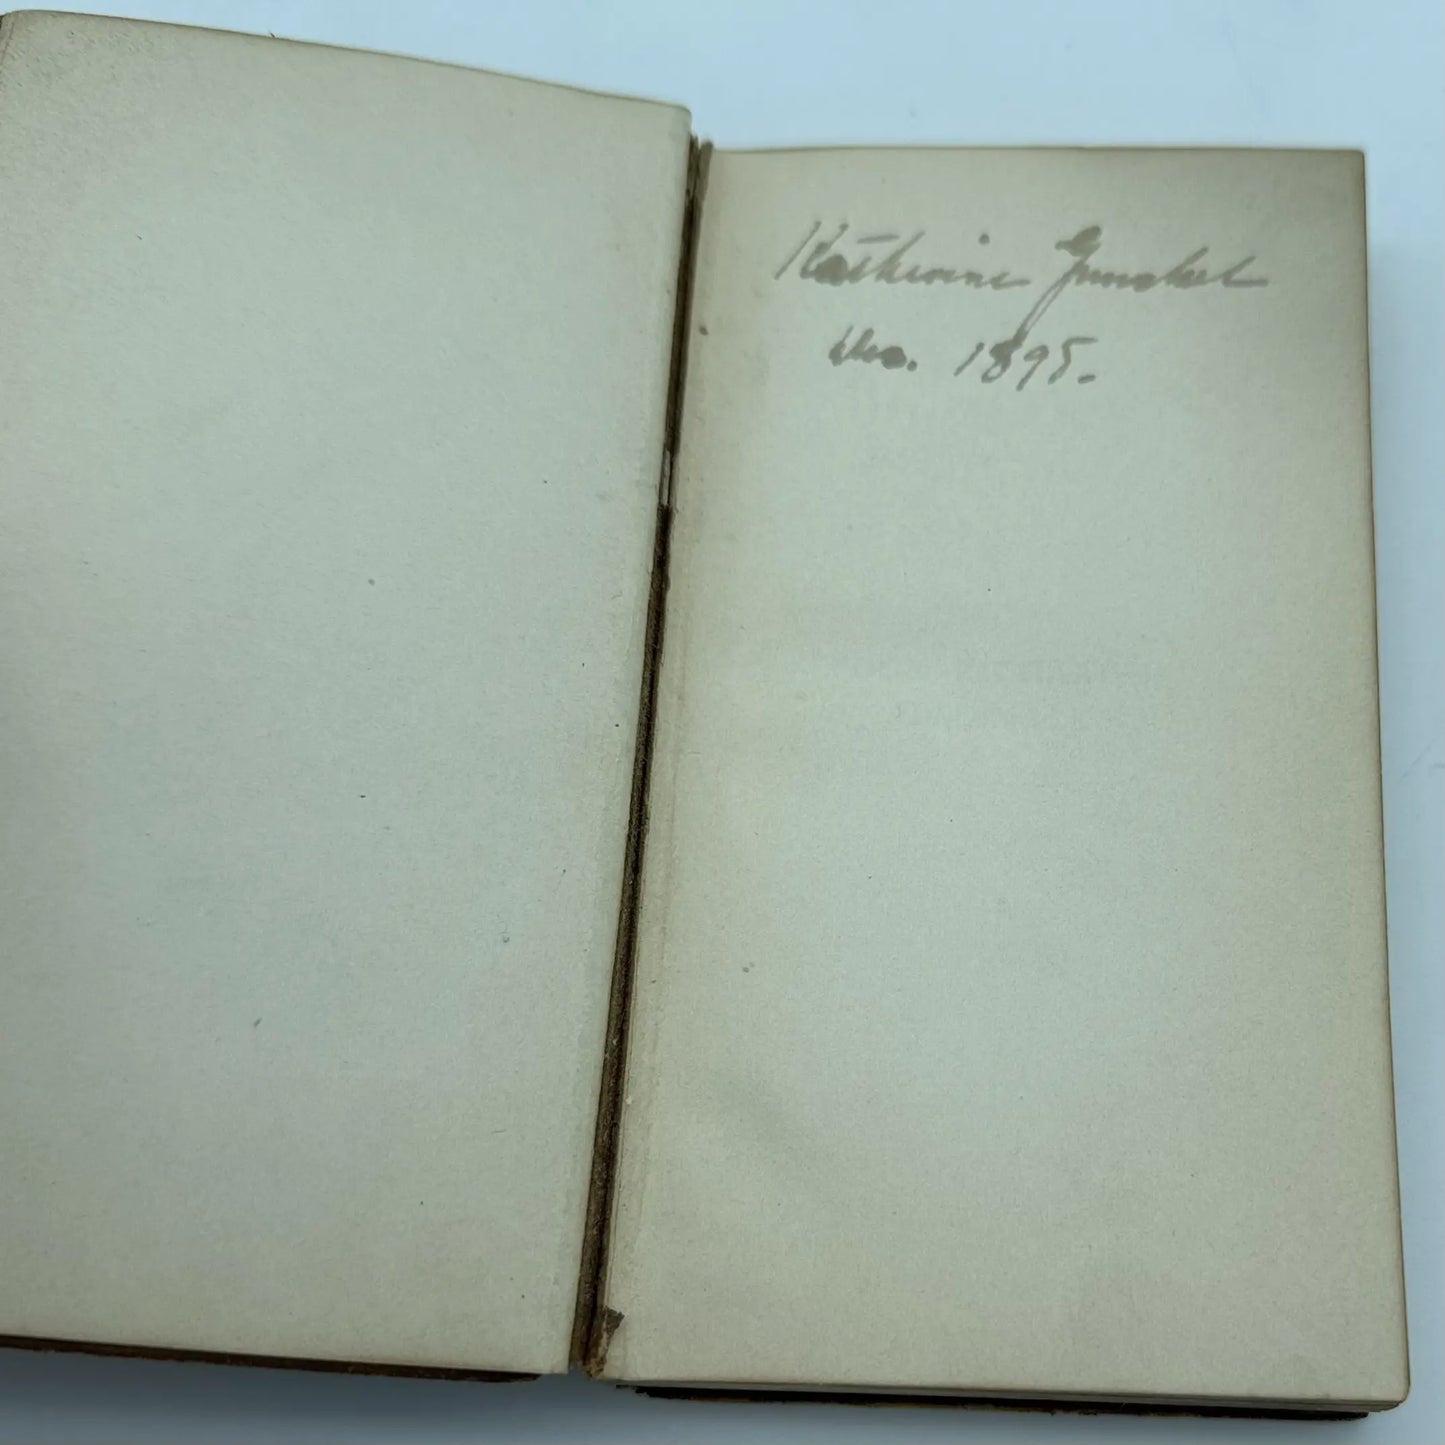 Katherine Gunckel
Dec. 1895.